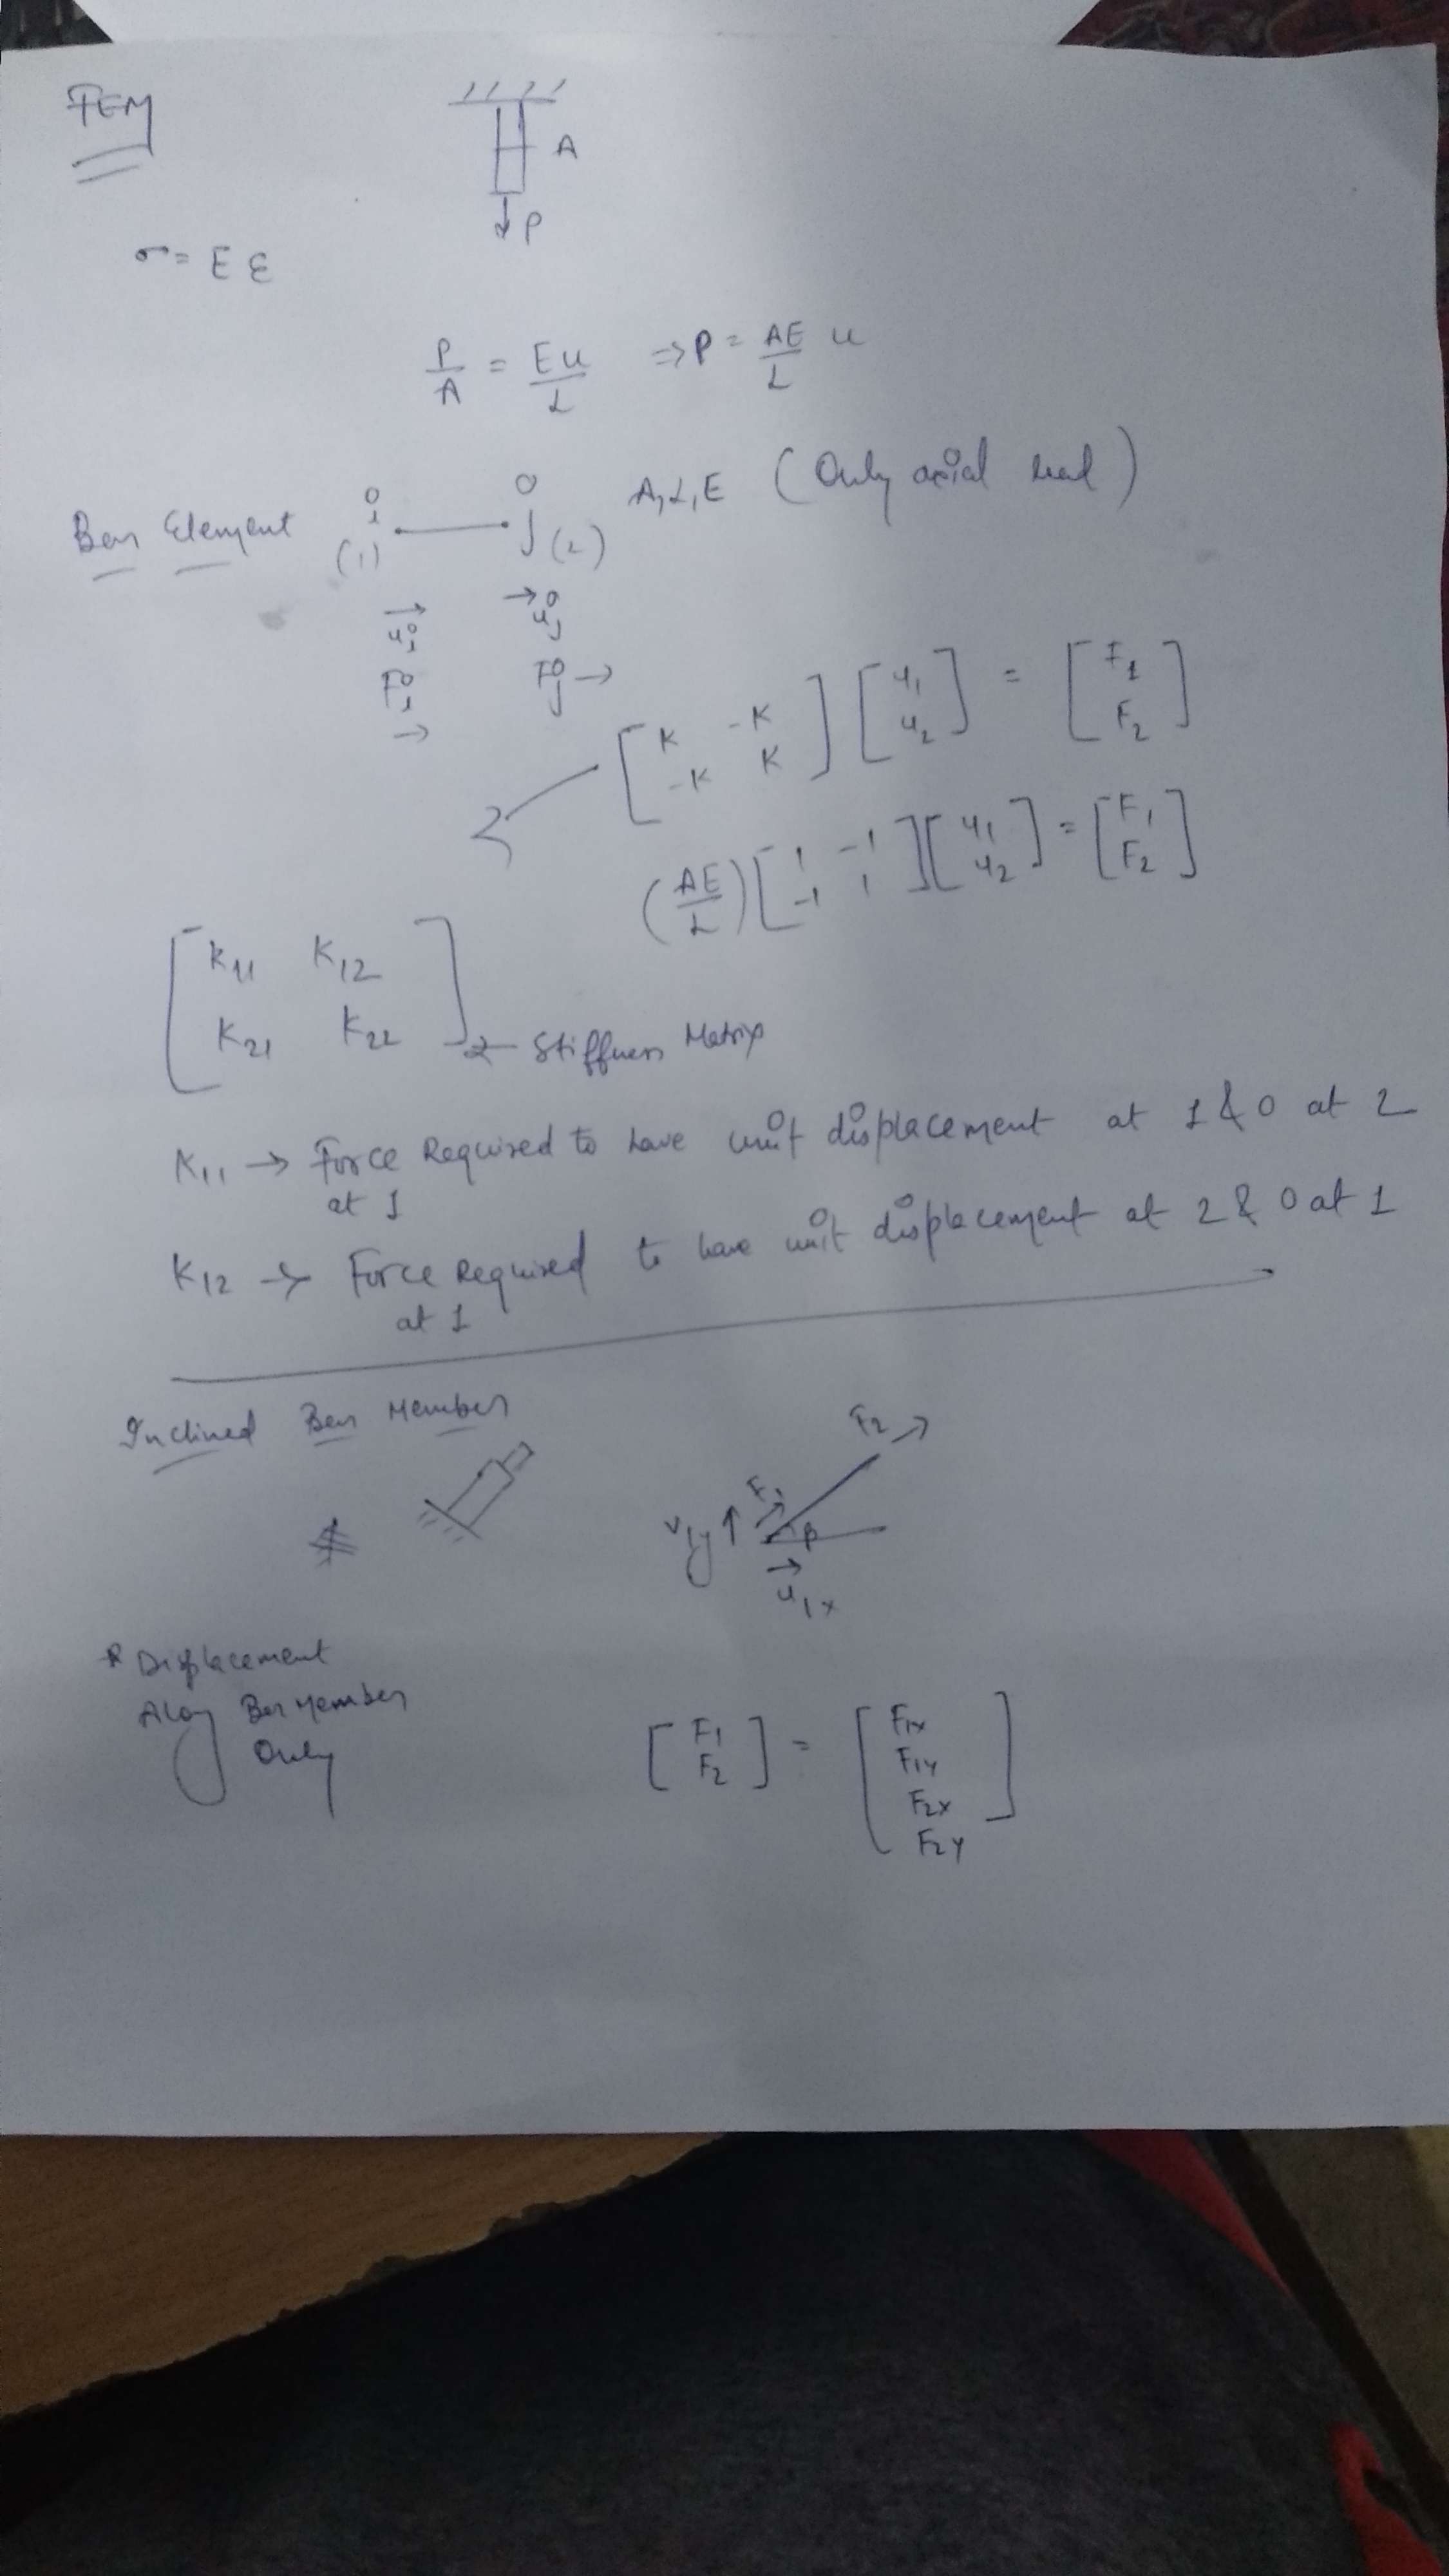 FEM
A
P
σ = E ε
P/A = Eu/L ⇒ P = AE/L u
Bar Element i (1) j (2) A, L, E (Only axial load)
→ui →uj
Fi → Fj →
[K -K; -K K] [u1; u2] = [F1; F2]
(AE/L) [1 -1; -1 1] [u1; u2] = [F1; F2]
[K11 K12; K21 K22] ← Stiffness Matrix
K11 → Force Required to have unit displacement at 1 & 0 at 2
at 1
K12 → Force Required to have unit displacement at 2 & 0 at 1
at 1
Inclined Bar Member
F2 →
F1
v1y ↑
→
u1x
* Displacement
Along Bar Member
Only
[F1; F2] = [F1x; F1y; F2x; F2y]